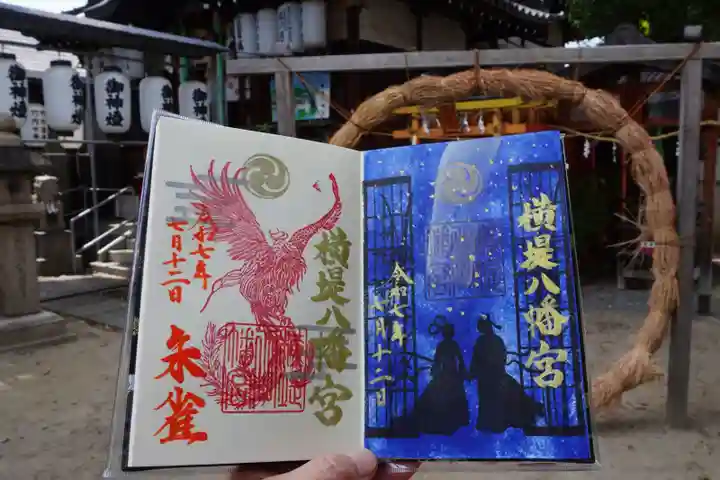 御神燈
御神燈
令和七年
七月十二日
朱雀
横堤八幡宮
横堤八幡宮
令和七年
七月十二日